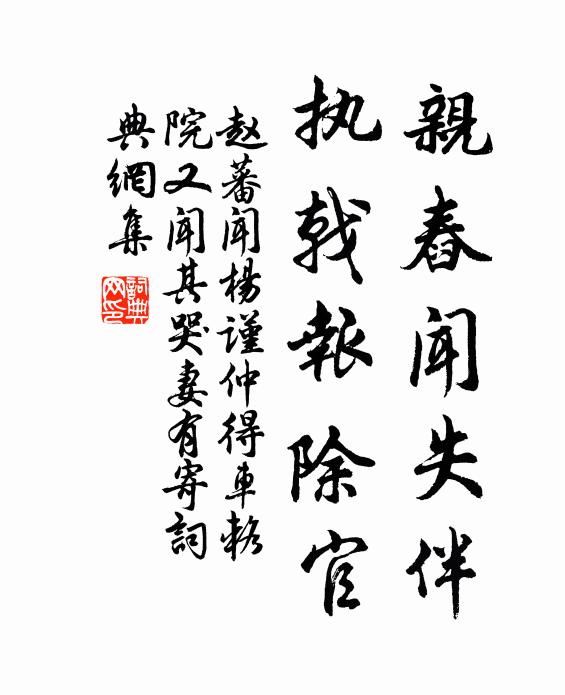 親舂聞失伴
执戟報除官
赵蕃闻楊謹仲得車輅
院又闻其哭妻有寄詞
典網集
詞典网印